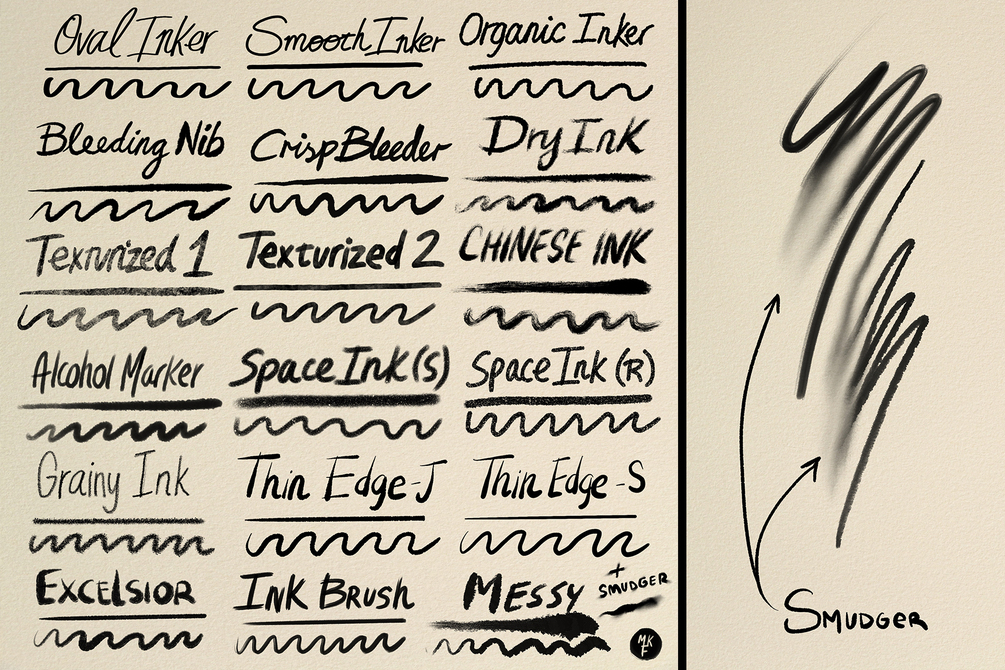 Oval Inker Smooth Inker Organic Inker
Bleeding Nib Crisp Bleeder Dry Ink
Texturized 1 Texturized 2 CHINESE INK
Alcohol Marker Space Ink (S) Space Ink (R)
Grainy Ink Thin Edge-J Thin Edge-S
EXCELSIOR INK BRUSH MESSY + SMUDGER
MKF
SMUDGER